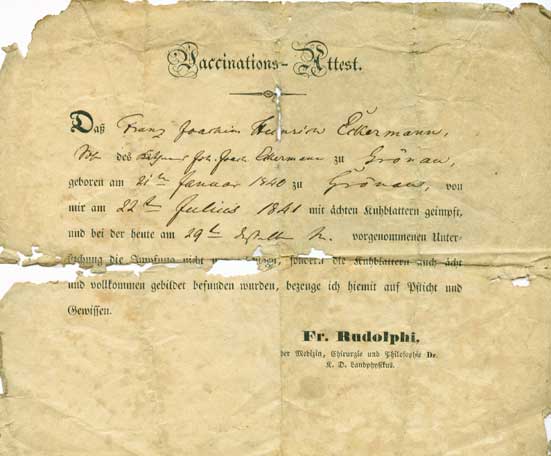 Vaccinations-Attest.
Daß Franz Joachim Heinrich Eckermann,
des Joh. Joach. Eckermann zu Grönau,
geboren am 21ten Januar 1840 zu Grönau, von
mir am 22ten Julius 1841 mit ächten Kuhblattern geimpft,
und bei der heute am 29ten vorgenommenen Unter-
suchung die Impfung nicht sondern die Kuhblattern auch ächt
und vollkommen gebildet befunden wurden, bezeuge ich hiemit auf Pflicht und
Gewissen.
Fr. Rudolphi,
der Medizin, Chirurgie und Philosophie Dr.
K. D. Landphysikus.